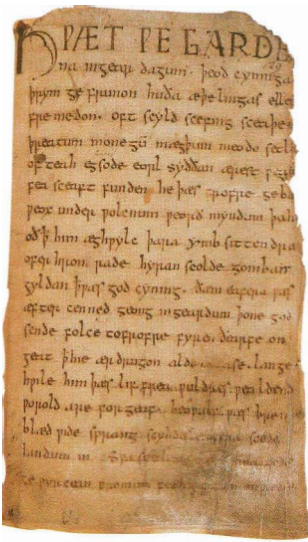 HǷÆT ǷE GARDE
na ingear dagum. þeod cyninga
þrym ge frunon huða æþelingas elle
fremedon. oft scyld scefing sceaþe
þreatum monegū mægþum meodo setl
of teah egsode eorl syððan ærest
fea sceaft funden he þæs frofre geba
ƿeox under ƿolcnum ƿeorð myndum þah
oð ꝥ him æghƿylc þara ymb sittendra
ofer hron rade hyran scolde gomban
gyldan ꝥ ƿæs god cyning. ðæm eafera ƿæs
æfter cenned geong in geardum þone god
sende folce tofrofre fyren ðearfe on
geat ꝥ hie ær drugon aldor ase. lange
hƿile him þæs lif frea ƿuldres ƿealdend
ƿorold are for geaf. beoƿulf ƿæs breme
blæd ƿide sprang scyldes eafera scede
landum in.
ge ƿyrcean fromum